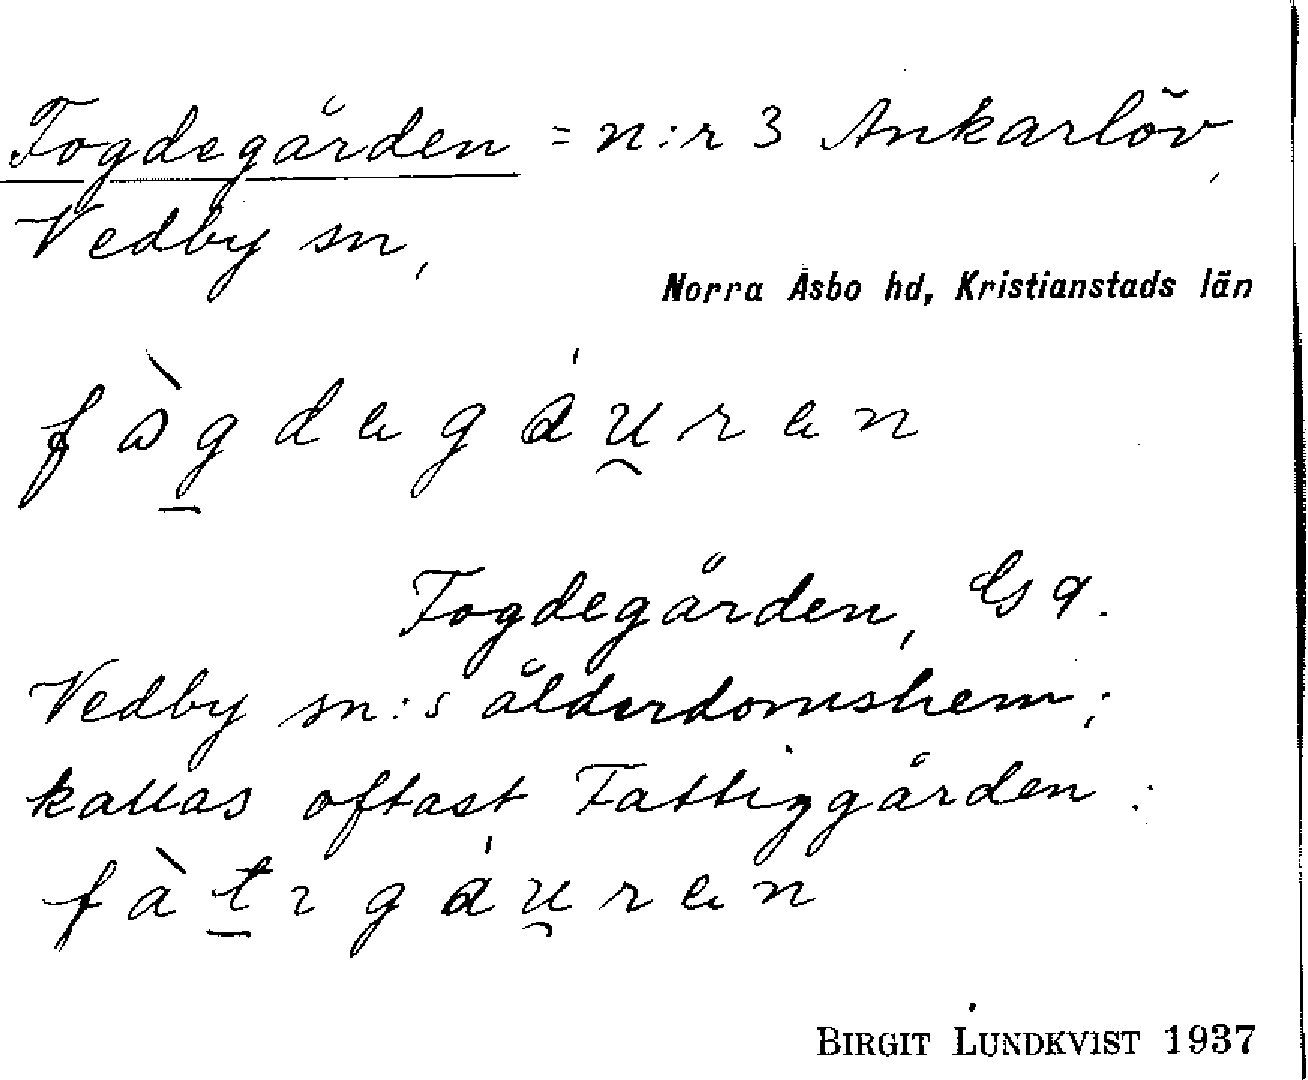 Fogdegården = n:r 3 Ankarlöv,
Vedby sn,
Norra Åsbo hd, Kristianstads län
fàgdegáu̯ren
Fogdegården, Gs 9.
Vedby sn:s ålderdomshem;
kallas oftast Fattiggården:
fàt̲ıgáu̯ren
BIRGIT LUNDKVIST 1937